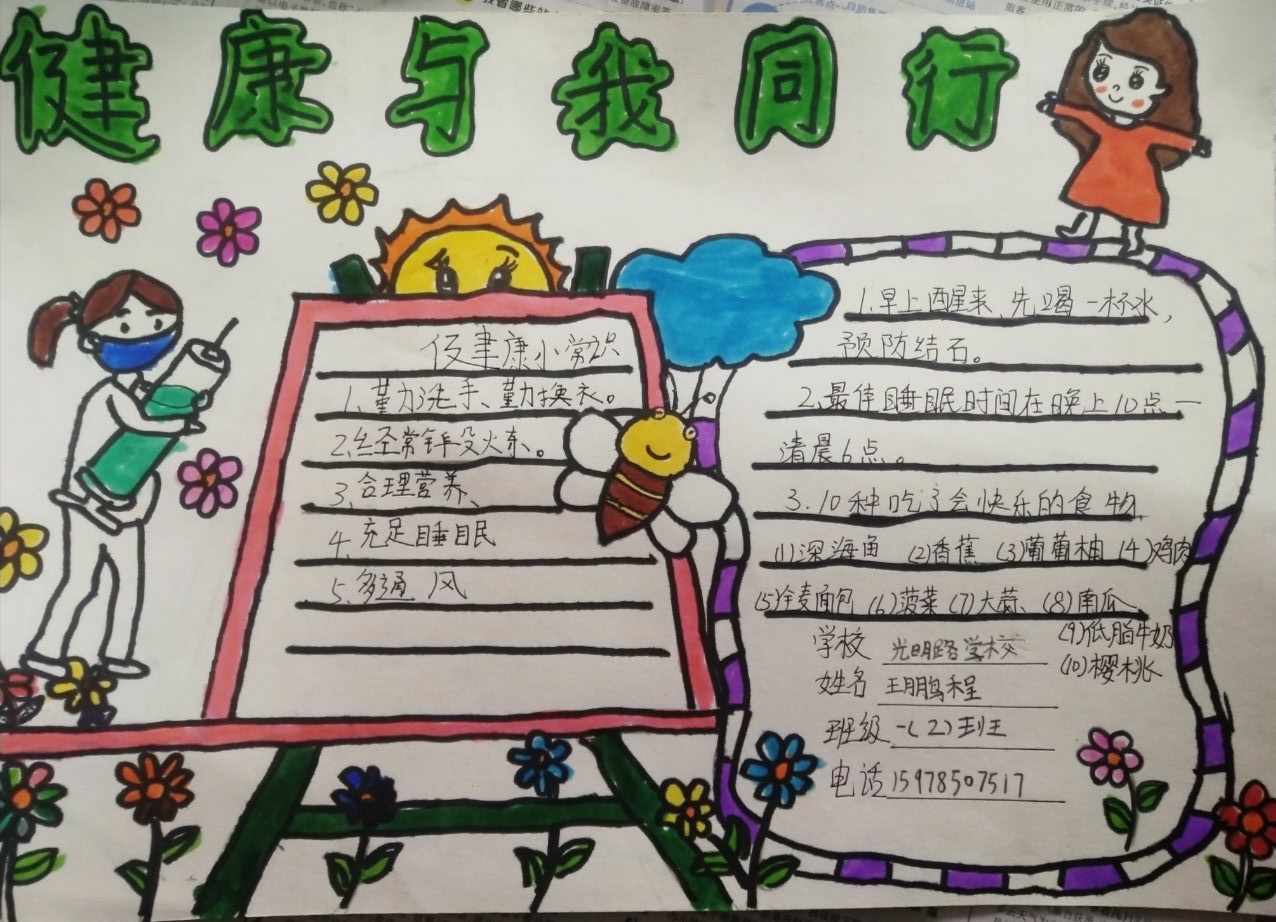 健康与我同行
健康小常识
1.勤洗手、勤换衣。
2.经常锻炼。
3.合理营养、
4.充足睡眠
5.多通风
1.早上醒来、先喝一杯水，
预防结石。
2.最佳睡眠时间在晚上10点一
清晨6点。
3.10种吃了会快乐的食物、
(1)深海鱼 (2)香蕉 (3)葡萄柚 (4)鸡肉
(5)全麦面包 (6)菠菜 (7)大蒜、(8)南瓜、
(9)低脂牛奶
(10)樱桃
学校 光明路学校
姓名 王鹏程
班级 一(2)班
电话 15978507517